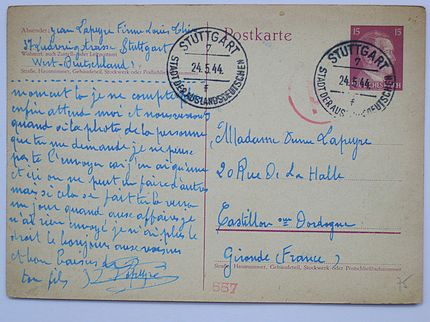 Absender: Jean Lapeyre Firma Louis
Stuttgart
Wohnort, auch Zustell- oder Leitpostamt
West-Deutschland
Straße, Hausnummer, Gebäudeteil, Stockwerk oder Postschließfach
Postkarte
15 15
STUTTGART
7
24.5.44.
f
STADT DER AUSLANDSDEUTSCHEN
STUTTGART
7
24.5.44.
f
STADT DER AUSLANDSDEUTSCHEN
moment là je ne compte
enfin attend moi et nous
quand à la photo de la personne
que tu me demande je ne peux
pas te l'envoyer car j'en ai qu'une
et ici on ne peut en faire d'autres
mais si cela se fait tu le verra
un jour quand aux affaires je
n'ai rien envoyé je n'ai plus le
droit le bonjour aux voisins
et bon baisers de
ton fils Lapeyre
Madame Lapeyre
20 Rue De La Halle
Castillon sur Dordogne
Gironde (France)
Straße, Hausnummer, Gebäudeteil, Stockwerk oder Postschließfachnummer
557